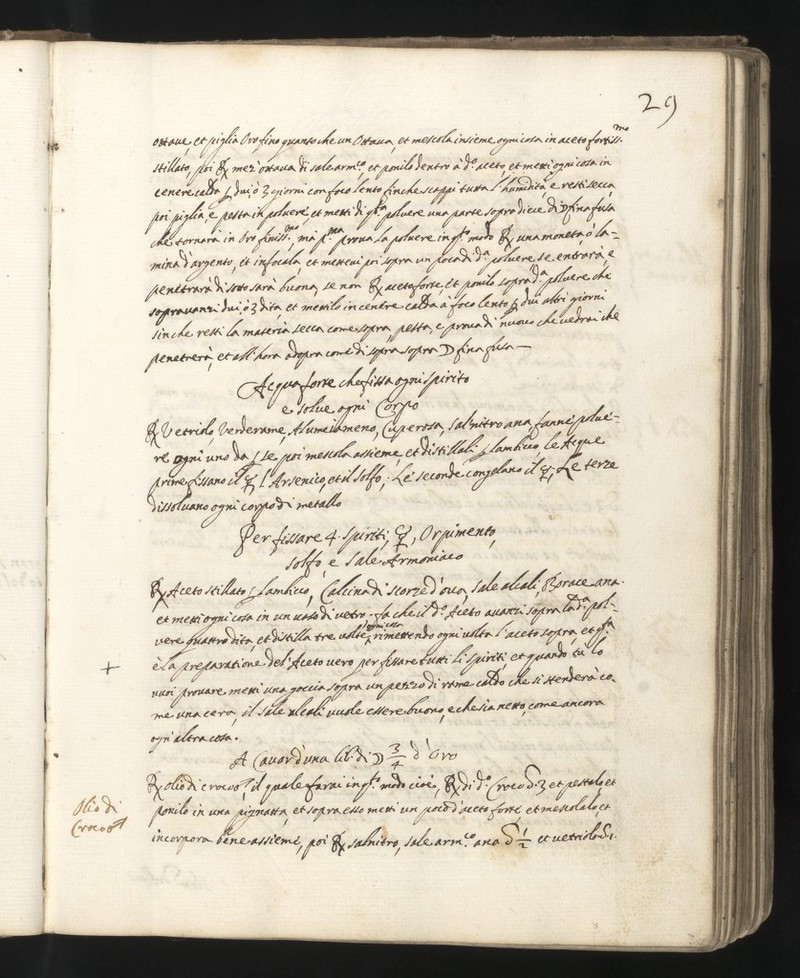 29
ottave, et piglia Oro fino quanto che un Ottava, et mescola insieme ogni cosa in aceto fortiss.mo
stillato, poi ℞ mez' ottava di sale arm.co, et ponilo dentro à d.o aceto, et metti ogni cosa in
cenere calda ꝑ dui, ò 3 giorni con foco lento finche scappi tutta l'humidità, e resti secca,
poi piglia, e pesta in polvere et metti di q.ta polvere una parte sopra dieci di ☽ fina fusa
che tornarà in Oro finiss.mo ma p.ma prova la polvere in q.o modo ℞ una moneta, ò la=
mina d'argento, et infocala, et mettevi poi sopra un poca di d.a polvere se entrarà, e
penetrarà di sotto sarà buona, se non ℞ aceto forte, et ponilo sopra d.a polvere che
sopravanzi dui, ò 3 dita, et mettilo in cenere calda a foco lento ꝑ dui altri giorni
sin che resti la materia secca come sopra, pesta, e prova di nuovo che vedrai che
penetrerà, et all'hora adopra come di sopra sopra ☽ fina fusa —
Acqua forte che fissa ogni spirito
e solve ogni Corpo
℞ Vetriolo Verderame, Alume iameno, Cuperosa, Salnitro ana fanne polve=
re ogni uno da ꝑ se poi mescola assieme, et distillali ꝑ lambico, le Acque
prime fissano il ☿ l'Arsenico, et il Solfo, Le seconde congelano il ☿; Le terze
dissolvano ogni corpo di metallo
Per fissare 4 spiriti, ☿, Orpimento,
solfo, e Sale Armoniaco
℞ Aceto stillato ꝑ lambico, Calcina di scorze d'ova, Sale alcali, Borace ana.
et metti ogni cosa in un vaso di vetro. fa che il d.o Aceto avanzi sopra la d.a pol=
vere quattro dita, et distilla tre volte ogni cosa rimettendo ogni volta l'aceto sopra, et q.ta
+ è la preparatione del'Aceto vero per fissare tutti li spiriti et quando tù lo
vuoi provare metti una goccia sopra un pezzo di rame caldo che si stenderà co=
me una cera, il sale alcali vuole essere buono, e che sia netto, come ancora
ogni altra cosa.
A Cavar d'una lib. di ☽ 3/4 d'Oro
Olio di
Croco ♂
℞ olio di croco ♂ il quale farai in q.o modo cioè, ℞ di d.o Croco ℥ 3 et pestalo, et
ponilo in una pignatta, et sopra esso metti un poco d'aceto forte et mescolalo, et
incorpora bene assieme, poi ℞ salnitro, sale arm.co ana ℥ 1/2 et vetriolo ℥ 1.